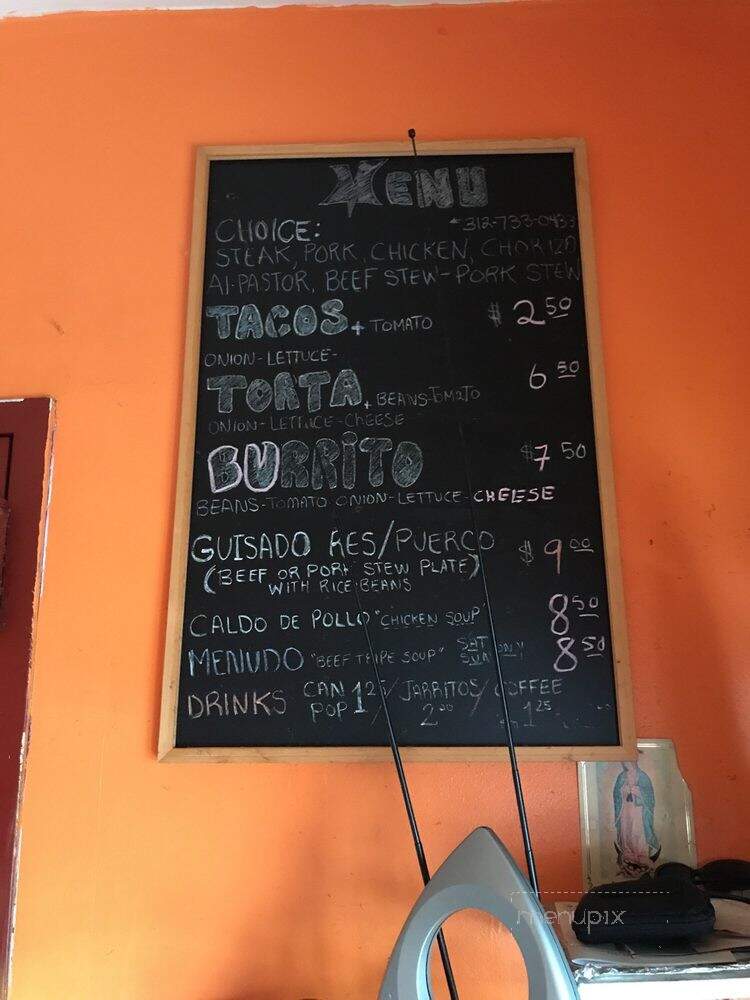 MENU
CHOICE: 312-733-0433
STEAK, PORK, CHICKEN, CHORIZO
Al-PASTOR, BEEF STEW-PORK STEW
TACOS + TOMATO $ 2 50
ONION-LETTUCE-
TORTA + BEANS-TOMATO 6 50
ONION-LETTUCE-CHEESE
BURRITO $7 50
BEANS-TOMATO ONION-LETTUCE-CHEESE
GUISADO RES/PUERCO $ 9 00
(BEEF OR PORK STEW PLATE)
WITH RICE BEANS
CALDO DE POLLO "CHICKEN SOUP" 8 50
MENUDO "BEEF TRIPE SOUP" SAT SUN ONY 8 50
DRINKS CAN POP 1 25/JARRITOS/ COFFEE
2 00 1 25
menupix